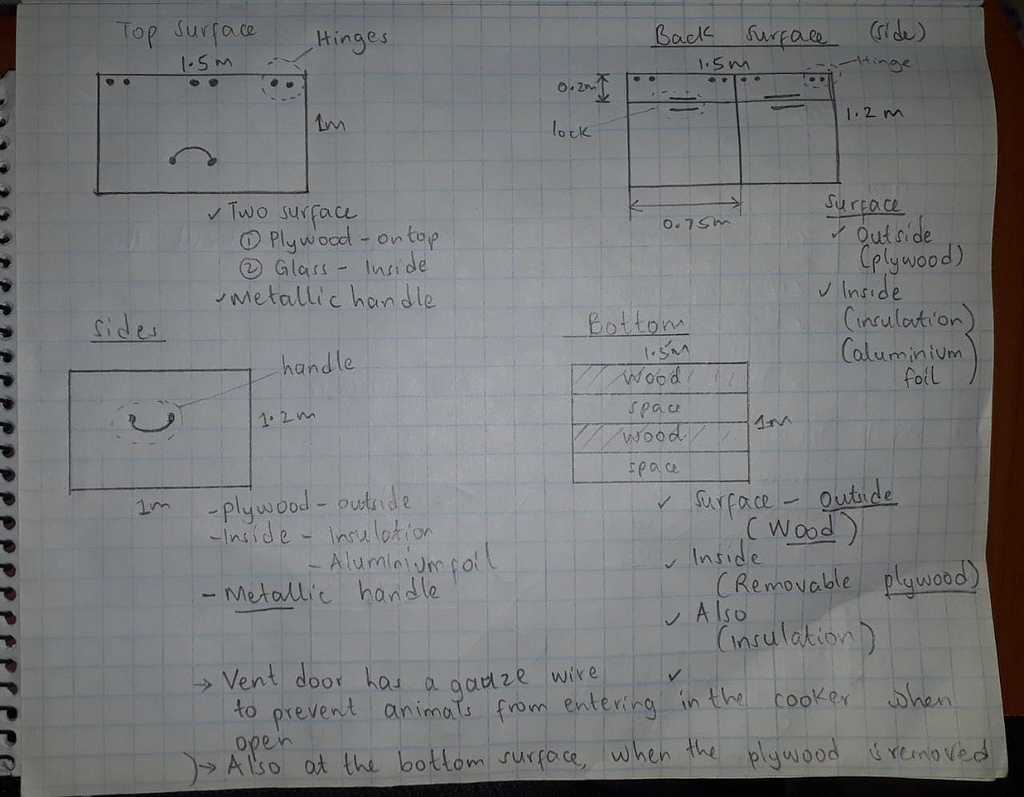 Top Surface
Hinges
1.5m
1m
✓ Two surface
① Plywood - ontop
② Glass - Inside
✓ Metallic handle
Back Surface (side)
1.5m
Hinge
0.2m
lock
1.2m
0.75m
Surface
✓ Outside
(plywood)
✓ Inside
(insulation)
(aluminium
foil)
Sides
handle
1.2m
1m
- plywood - outside
- Inside - Insulation
- Aluminium foil
- Metallic handle
Bottom
1.5m
Wood
space
wood
space
1m
✓ Surface - outside
(Wood)
✓ Inside
(Removable plywood)
✓ Also
(insulation)
→ Vent door has a gauze wire ✓
to prevent animals from entering in the cooker when
open
)→ Also at the bottom surface, when the plywood is removed